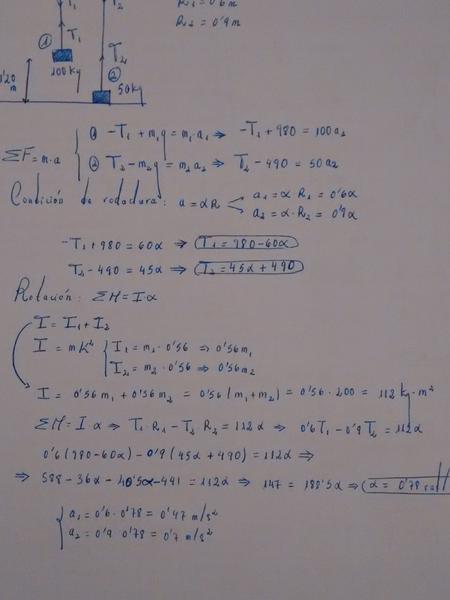 T₁ T₂ R₁ = 0'6m
R₂ = 0'9m
① T₁
T₂
100kg ②
1'20 m 50kg
ΣF=m·a { ① -T₁ + m₁g = m₁a₁ ⇒ -T₁ + 980 = 100a₁
② T₂ - m₂g = m₂a₂ ⇒ T₂ - 490 = 50a₂
Condición de rodadura: a = αR a₁ = α·R₁ = 0'6α
a₂ = α·R₂ = 0'9α
-T₁ + 980 = 60α ⇒ T₁ = 980 - 60α
T₂ - 490 = 45α ⇒ T₂ = 45α + 490
Rotación: ΣM = I·α
I = I₁ + I₂
I = mK² { I₁ = m₁·0'56 ⇒ 0'56m₁
I₂ = m₂·0'56 ⇒ 0'56m₂
I = 0'56m₁ + 0'56m₂ = 0'56(m₁+m₂) = 0'56·200 = 112 kg·m²
ΣM = I·α ⇒ T₁·R₁ - T₂·R₂ = 112α ⇒ 0'6T₁ - 0'9T₂ = 112α
0'6(980-60α) - 0'9(45α+490) = 112α ⇒
⇒ 588 - 36α - 40'5α - 441 = 112α ⇒ 147 = 188'5α ⇒ α = 0'78
{ a₁ = 0'6·0'78 = 0'47 m/s²
a₂ = 0'9·0'78 = 0'7 m/s²